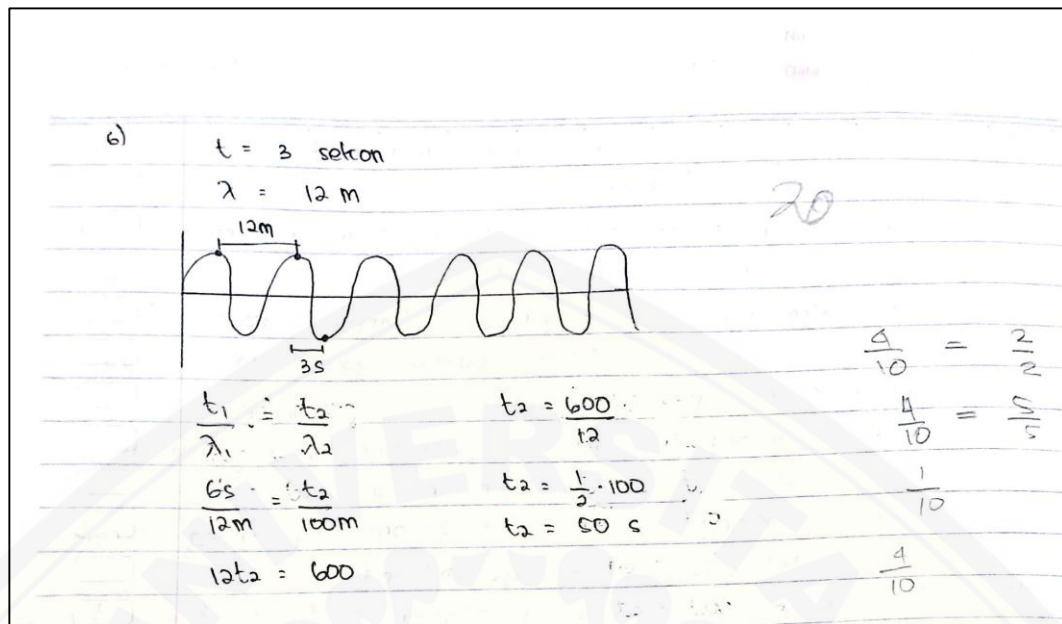 No
Date
6)
t = 3 sekon
λ = 12 m
20
12m
3s
t₁/λ₁ = t₂/λ₂
6s/12m = t₂/100m
12t₂ = 600
t₂ = 600/12
t₂ = 1/2 · 100
t₂ = 50 s
4/10 = 2/2
4/10 = 5/5
1/10
4/10
UNIVERSITA